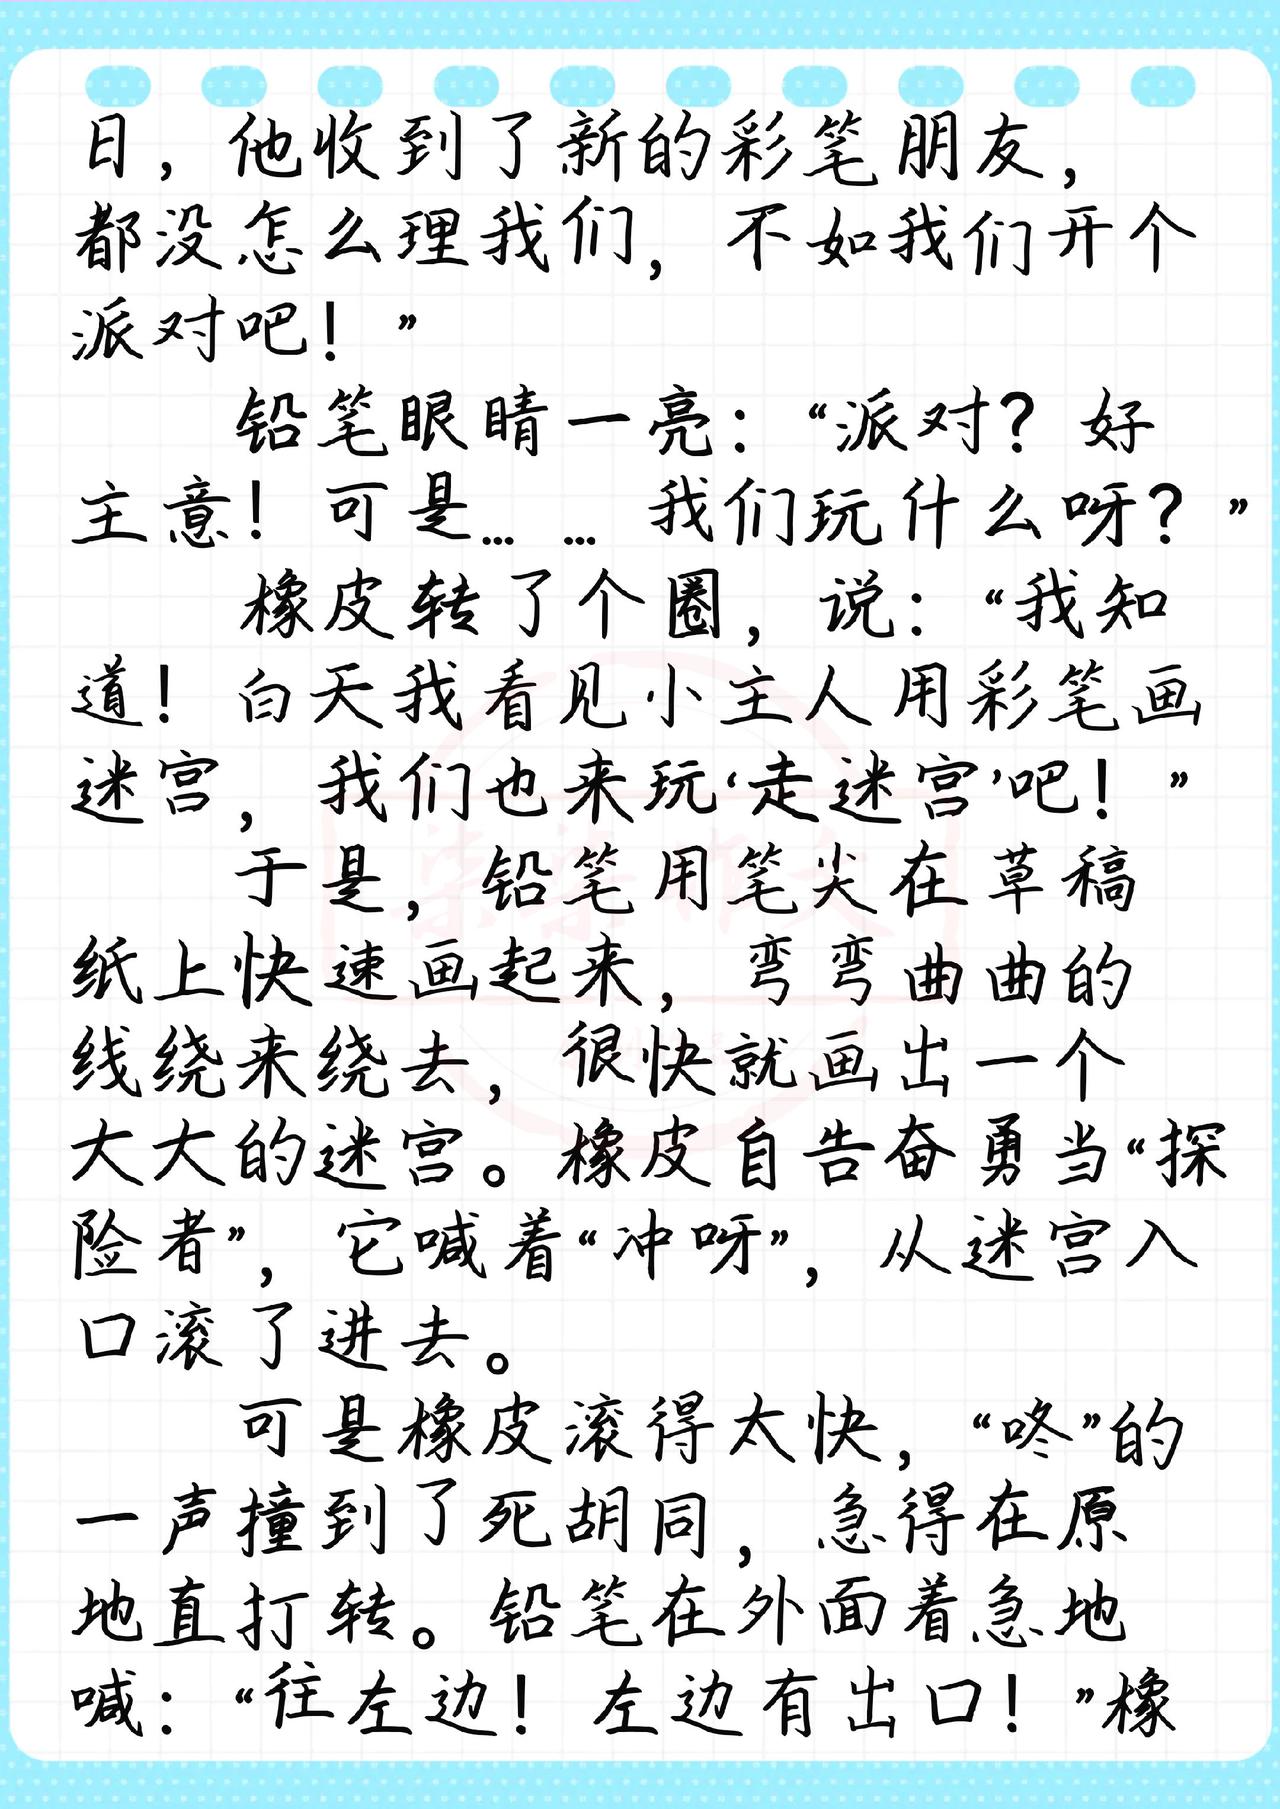 日，他收到了新的彩笔朋友，
都没怎么理我们，不如我们开个
派对吧！”
铅笔眼睛一亮：“派对？好
主意！可是……我们玩什么呀？”
橡皮转了个圈，说：“我知
道！白天我看见小主人用彩笔画
迷宫，我们也来玩‘走迷宫’吧！”
于是，铅笔用笔尖在草稿
纸上快速画起来，弯弯曲曲的
线绕来绕去，很快就画出一个
大大的迷宫。橡皮自告奋勇当“探
险者”，它喊着“冲呀”，从迷宫入
口滚了进去。
可是橡皮滚得太快，“咚”的
一声撞到了死胡同，急得在原
地直打转。铅笔在外面着急地
喊：“往左边！左边有出口！”橡